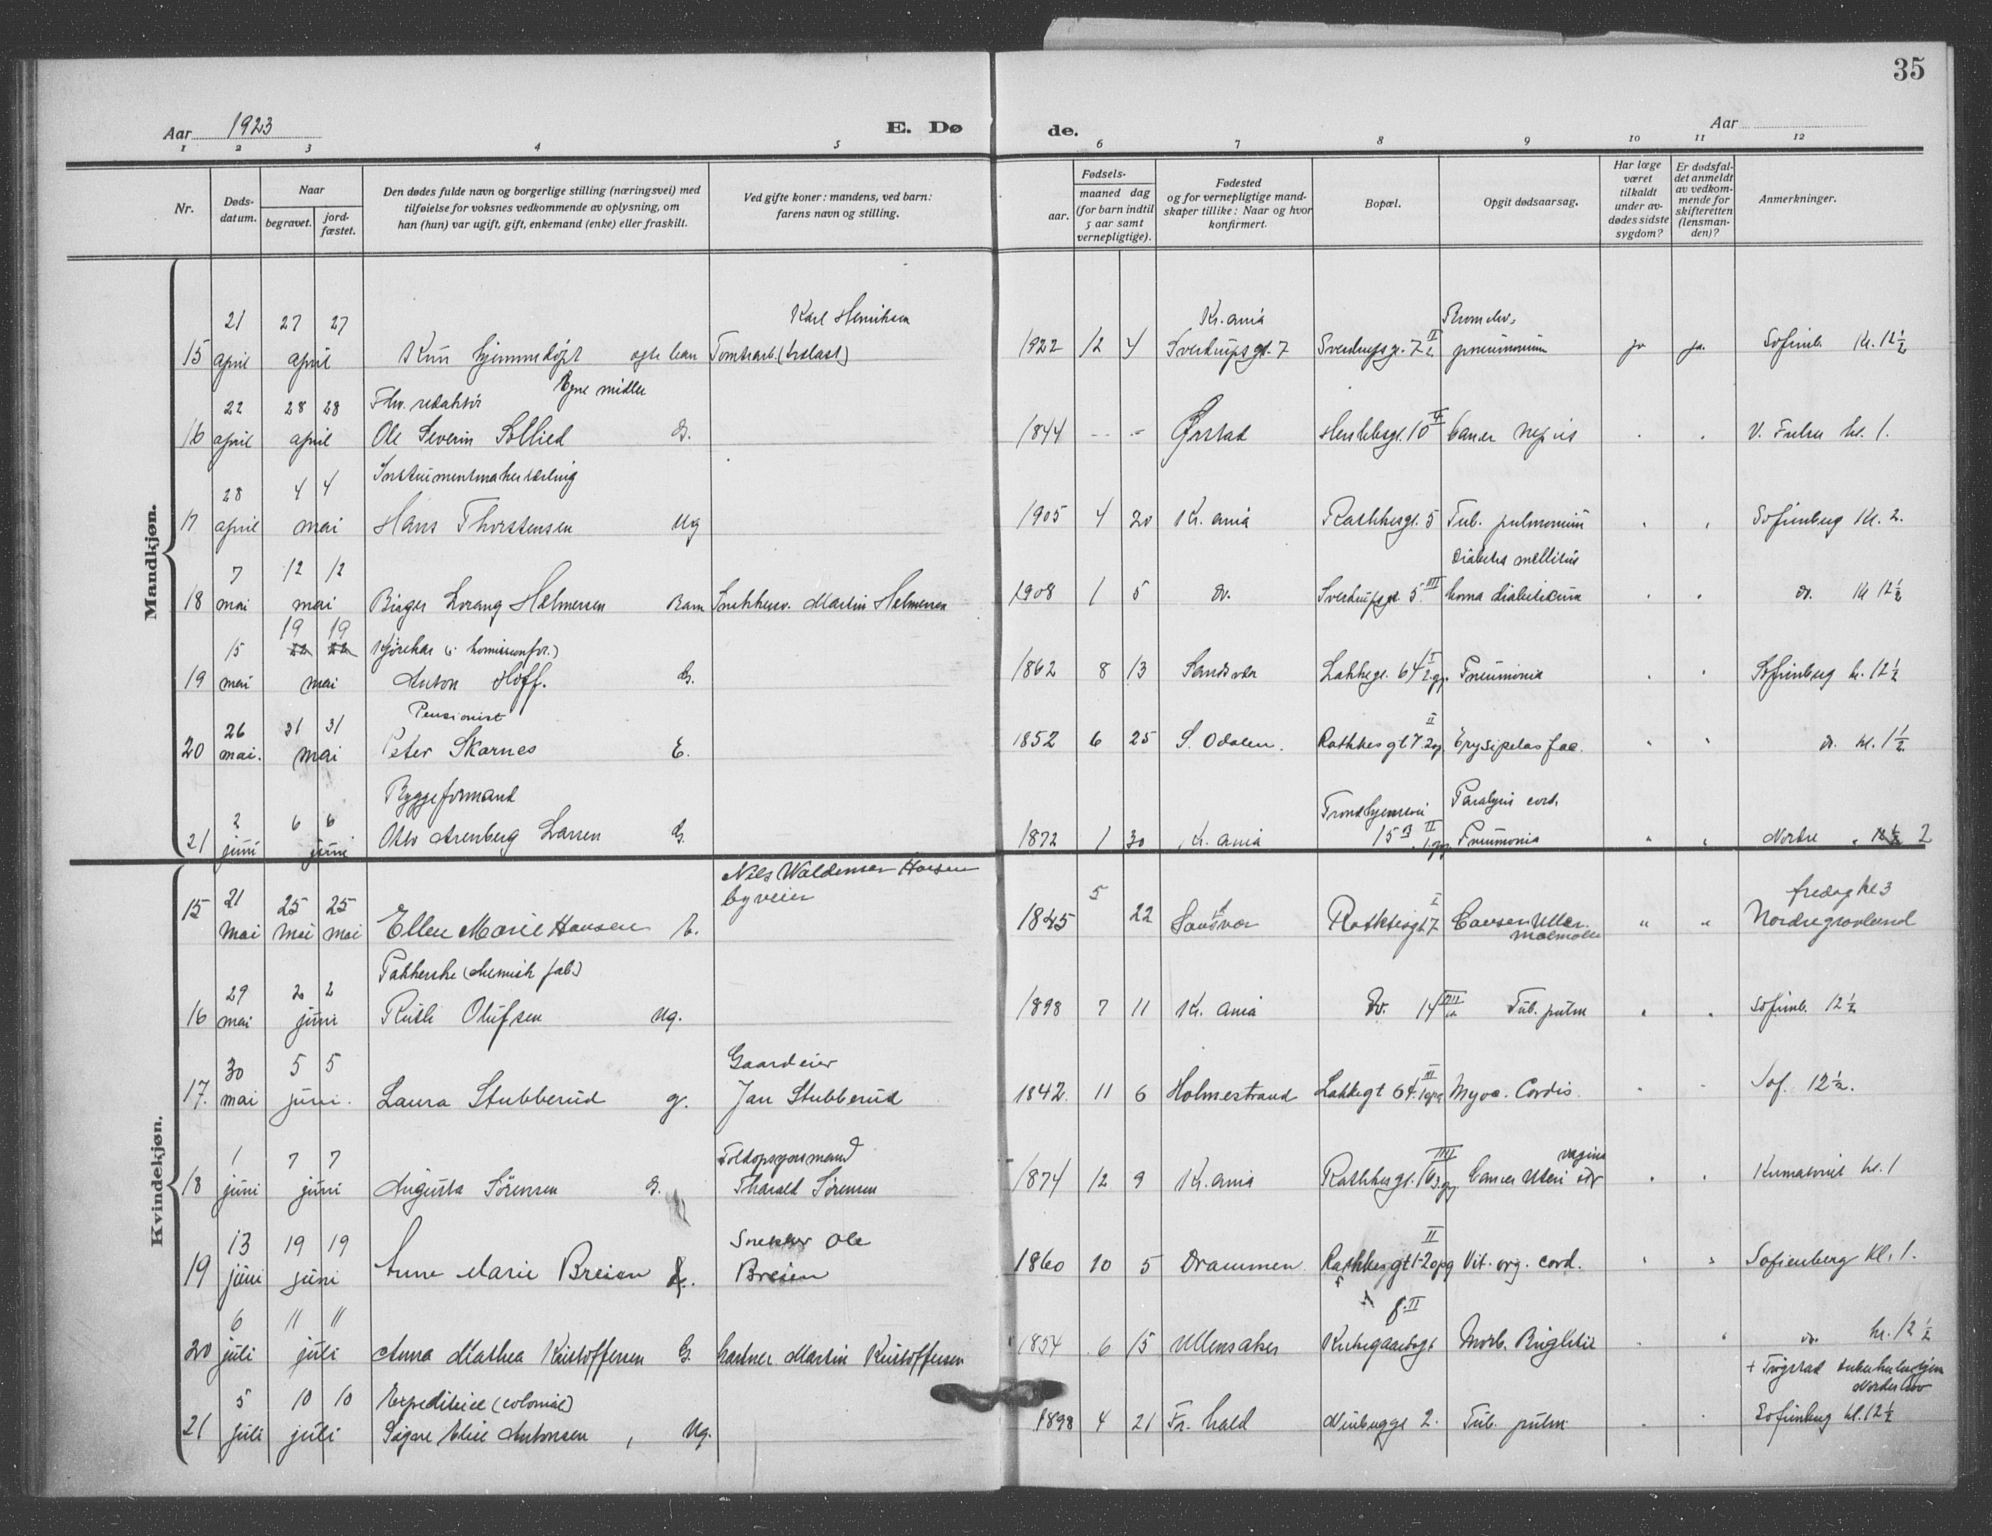 35
Aar 1923
E. Dø
de.
Aar
1 2 3 4 5 6 7 8 9 10 11 12
Nr.
Døds-
datum.
Naar
begravet.
jord-
fæstet.
Den dødes fulde navn og borgerlige stilling (næringsvei) med
tilføielse for voksnes vedkommende av oplysning, om
han (hun) var ugift, gift, enkemand (enke) eller fraskilt.
Ved gifte koner: mandens, ved barn:
farens navn og stilling.
Fødsels-
aar.
maaned dag
(for barn indtil
5 aar samt
vernepligtige).
Fødested
og for vernepligtige mand-
skaper tillike: Naar og hvor
konfirmert.
Bopæl.
Opgit dødsaarsag.
Har læge
været
tilkaldt
under av-
dødes sidste
sygdom?
Er dødsfal-
det anmeldt
av vedkom-
mende for
skifteretten
(lensman-
den)?
Anmerkninger.
Mandkjøn.
21 27 27 Karl Henriksen Kr.ania
15 april april Kun hjemmedøpt Tomtearb. 1922 12 4 Sverdrupsgt. 7 Sverdrupsgt. 7 pneumonium ja ja Sofienb. Kl. 12½
22 28 28 Fhv. redaktør Egne midler
16 april april Ole Severin Sollied G. 1844 - - Ørstad 10 V. Frelser kl. 1.
28 4 4 Instrumentmakerlærling
17 april mai Hans Thorstensen Ug 1905 4 20 Kr.ania Rathkesgt. 5 Tub. pulmonum Sofienberg Kl. 2.
7 12 12 Diabetes mellitus
18 mai mai Birger Lorang Halmersen Barn Snekkersv. Martin Halmersen 1908 1 5 do. Sverdrupsgt. 5 III Coma diabeticum do. Kl 12½
15 19 19 Kjørekar
19 mai mai Anton Hoff. G. 1862 8 13 Sandsvær Lakkegt. 64 Pneumonia Sofienberg kl. 12½
26 31 31 Pensionist II
20 mai. mai Peter Skarnes E. 1852 6 25 S. Odalen. Rathkesgt 7 2opg Erysipelas fac. do. kl. 1½
Byggeformand Trondhjemsvei Paralysis cord.
2 6 6
21 juni juni Otto Arenberg Larsen G. 1872 1 30 Kr.ania 15 II Pneumonia Nordre 2
Kvindekjøn.
Nils Waldemar Hansen
21 25 25 byveier 5 I fredag kl 3
15 Mai Mai mai Ellen Marie Hansen E. 1845 22 Sandsvær Rathkesgt 7 Cancer Nordregravlund
Pakkerske (kemisk fab.)
29 2 2
16 mai juni Ruth Olufsen Ug. 1898 7 11 Kr.ania Do. 14 Tub. pulm Sofienb. 12½
30 5 5 Gaardeier III
17. mai juni. Laura Stubberud g. Jan Stubberud 1842. 11 6 Holmestrand Lakkegt 64. 1opg Myoc. Cordis. Sof. 12½.
1 7 7 Toldopsynsmand III vagina
18 juni juni Augusta Sørensen G. Tharald Sørensen 1874 12 9 Kr.ania Rathkesgt. Cancer Uteri Krematoriet kl. 1
13 19 19 Snekker Ole II
19 juni juni Anne Marie Breien Breien 1860 10 5 Drammen. Rathkesgt 1-2opg Vit. org. cord. Sofienberg Kl. 1.
6 11 11 8. II
20 juli juli Anna Mathea Kristoffersen G. Gartner Martin Kristoffersen 1854 6 15 Ullensaker Kirkegaardsgt Morb. Brightii do. kl. 12½
+ Trøgstad
5 10 10 Expeditrice (colonial)
21 juli juli Signe Elise Antonsen Ug. 1898 4 21 Fr. hald 2. Tub. pulm Sofienberg kl. 12½